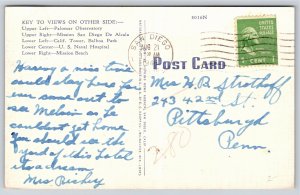 KEY TO VIEWS ON OTHER SIDE:—
Upper Left—Palomar Observatory
Upper Right—Mission San Diego De Alcala
Lower Left—Calif. Tower, Balboa Park
Lower Center—U. S. Naval Hospital
Lower Right—Mission Beach
8016N
SAN DIEGO
AUG 21
POST CARD
1 CENT
Having a nice time
could stay here for
ever came out to
see Melvin as he
couldn't get home
You should see the
yard of this hotel
its a dream
Mrs Richey
Mrs H B Strothoff
243 42nd St
Pittsburgh
Penn
280